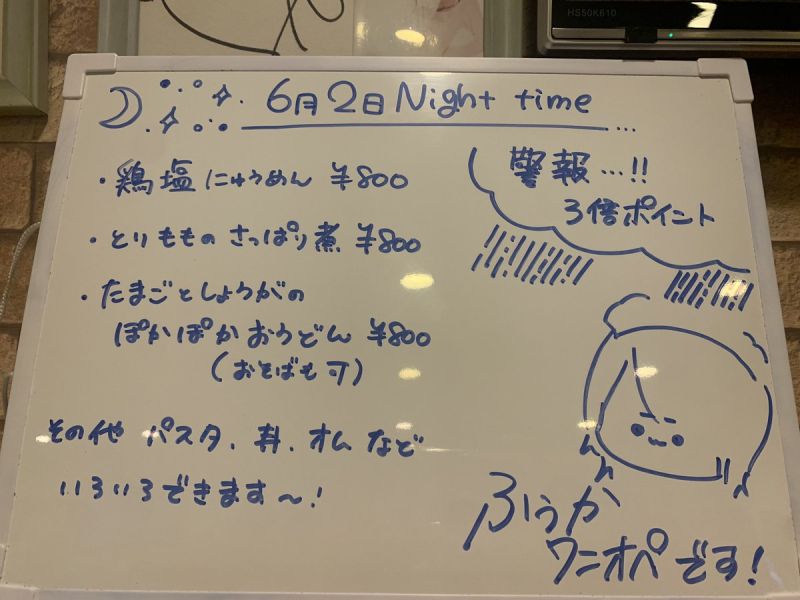 HS50K610
6月2日 Night time …
・鶏塩にゅうめん ¥800
・とりもものさっぱり煮 ¥800
・たまごとしょうがの
ぽかぽかおうどん ¥800
(おそばも可)
その他 パスタ、丼、オムなど
いろいろできます〜!
警報…!!
3倍ポイント
ふうか
ワンオペです!